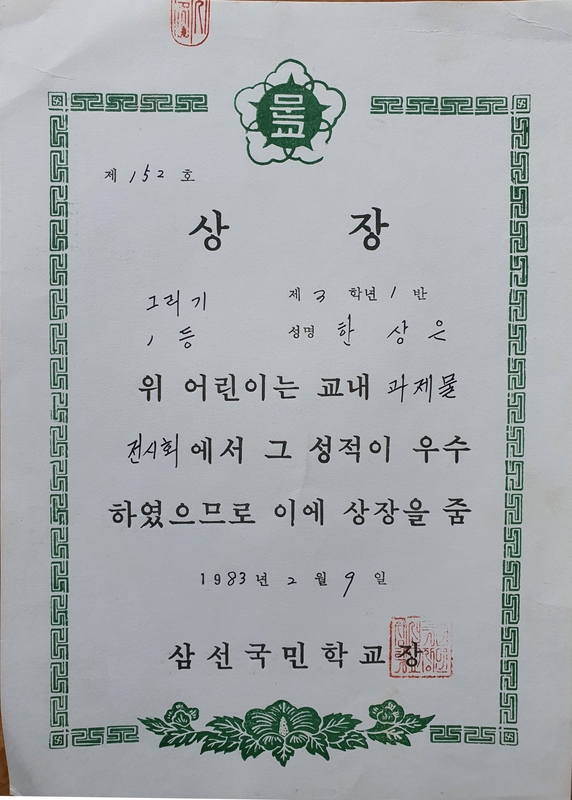 문교
제 152 호
상 장
그리기 제 3 학년 1 반
1 등 성명 한 상 은
위 어린이는 교내 과제물
전시회에서 그 성적이 우수
하였으므로 이에 상장을 줌
1983년 2 월 9 일
삼선국민학교장